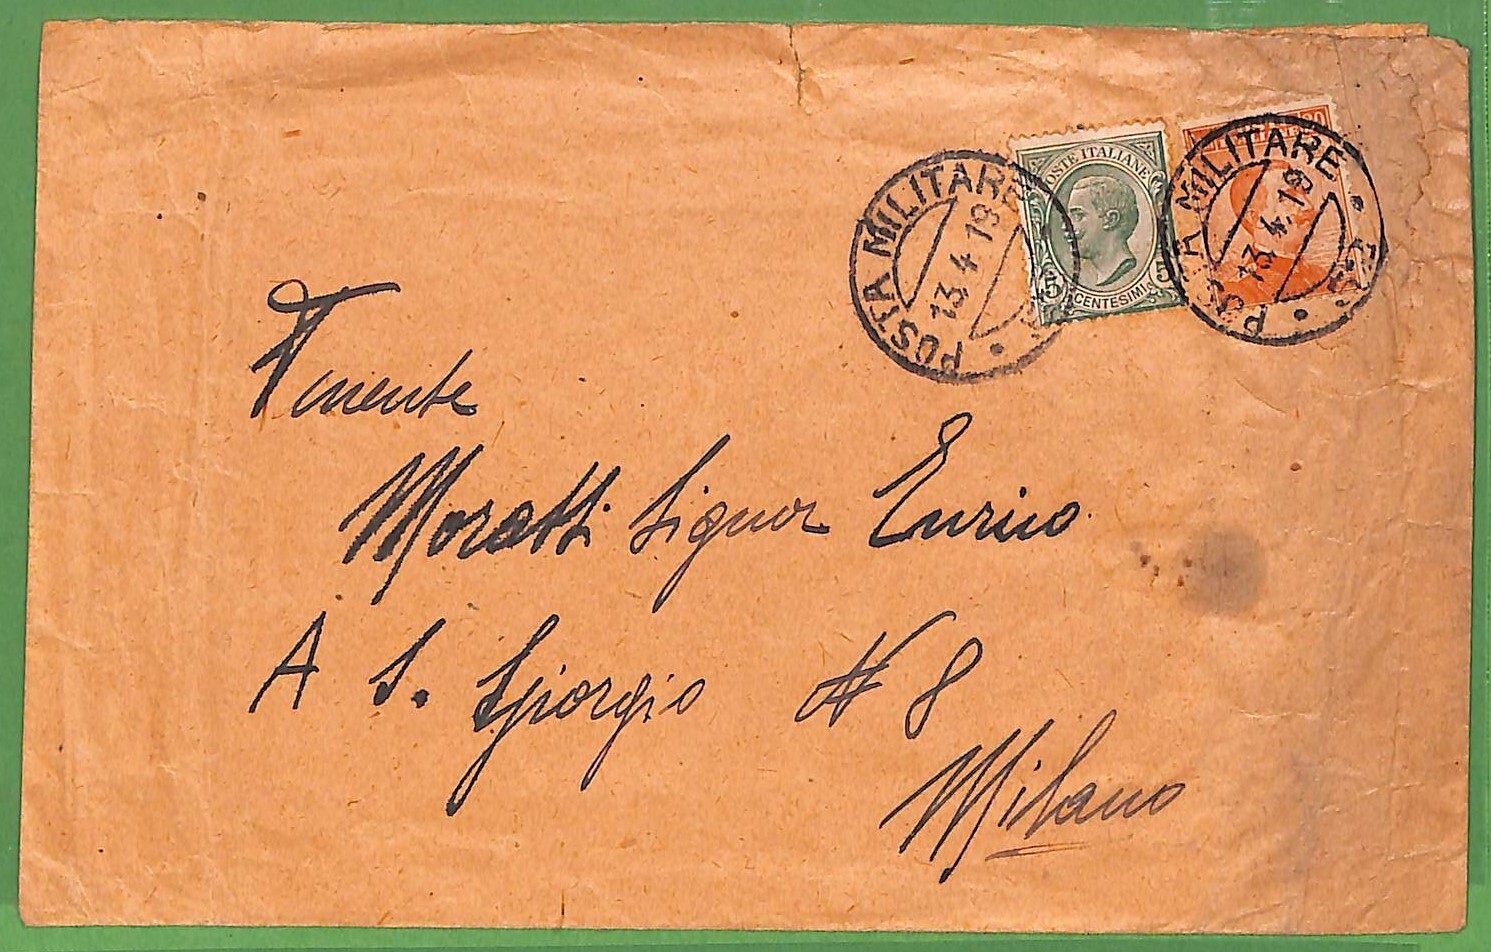 POSTE ITALIANE
5 5
CENTESIMI
20
POSTA MILITARE
13.4.19
POSTA MILITARE
13.4.19
Tenente
Moretti Signor Enrico
A S. Giorgio N 8
Milano